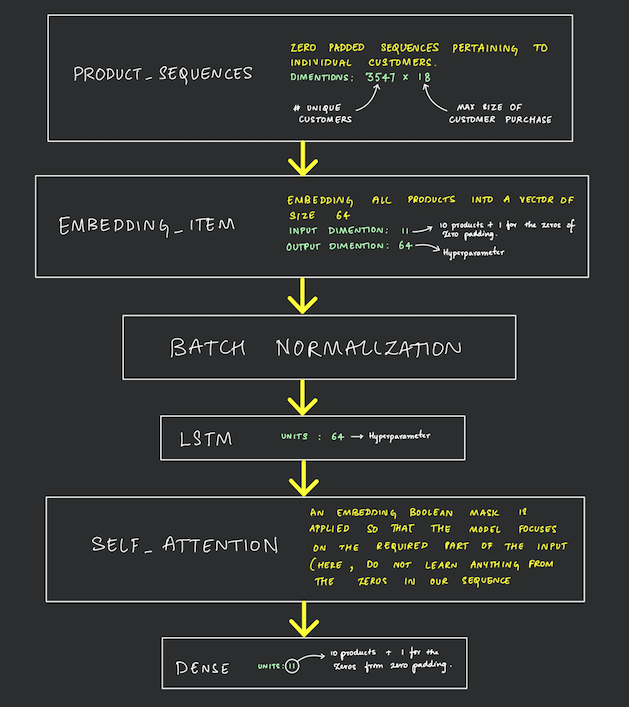 PRODUCT_SEQUENCES
ZERO PADDED SEQUENCES PERTAINING TO
INDIVIDUAL CUSTOMERS.
DIMENTIONS: 3547 × 18
# UNIQUE
CUSTOMERS
MAX SIZE OF
CUSTOMER PURCHASE
EMBEDDING_ITEM
EMBEDDING ALL PRODUCTS INTO A VECTOR OF
SIZE 64
INPUT DIMENTION: 11
10 products + 1 for the zeros of
Zero padding.
OUTPUT DIMENTION: 64
Hyperparameter
BATCH NORMALIZATION
LSTM
UNITS : 64 → Hyperparameter
SELF_ATTENTION
AN EMBEDDING BOOLEAN MASK IS
APPLIED SO THAT THE MODEL FOCUSES
ON THE REQUIRED PART OF THE INPUT
(HERE, DO NOT LEARN ANYTHING FROM
THE ZEROS IN OUR SEQUENCE
DENSE
UNITS: 11
10 products + 1 for the
Zeros from zero padding.